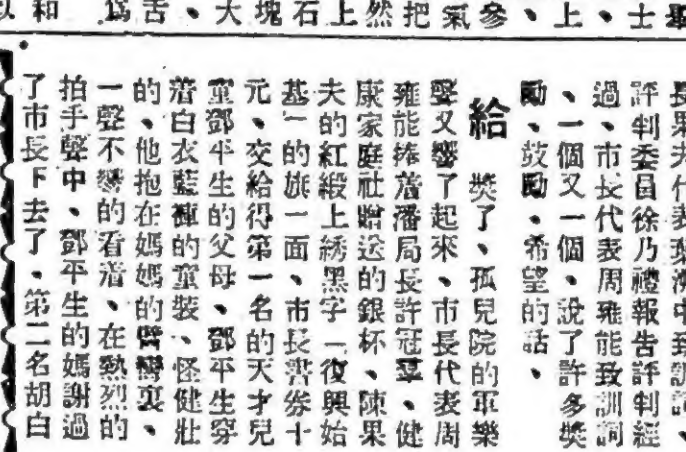 聖士、上、參氣把然上石塊大、舌爲和以
長果夫代表葉溯中致訓詞、
評判委員徐乃禮報告評判經
過、市長代表周雍能致訓詞
、一個又一個、說了許多獎
勵、鼓勵、希望的話、
給獎了、孤兒院的軍樂
聲又響了起來、市長代表周
雍能捧着潘局長許冠羣、健
康家庭社贈送的銀杯、陳果
夫的紅緞上綉黑字「復興始
基」的旗一面、市長書券十
元、交給得第一名的天才兒
童鄧平生的父母、鄧平生穿
着白衣藍褲的童裝、怪健壯
的、他抱在媽媽的臂彎裏、
一聲不響的看着、在熱烈的
拍手聲中、鄧平生的媽謝過
了市長下去了、第二名胡白